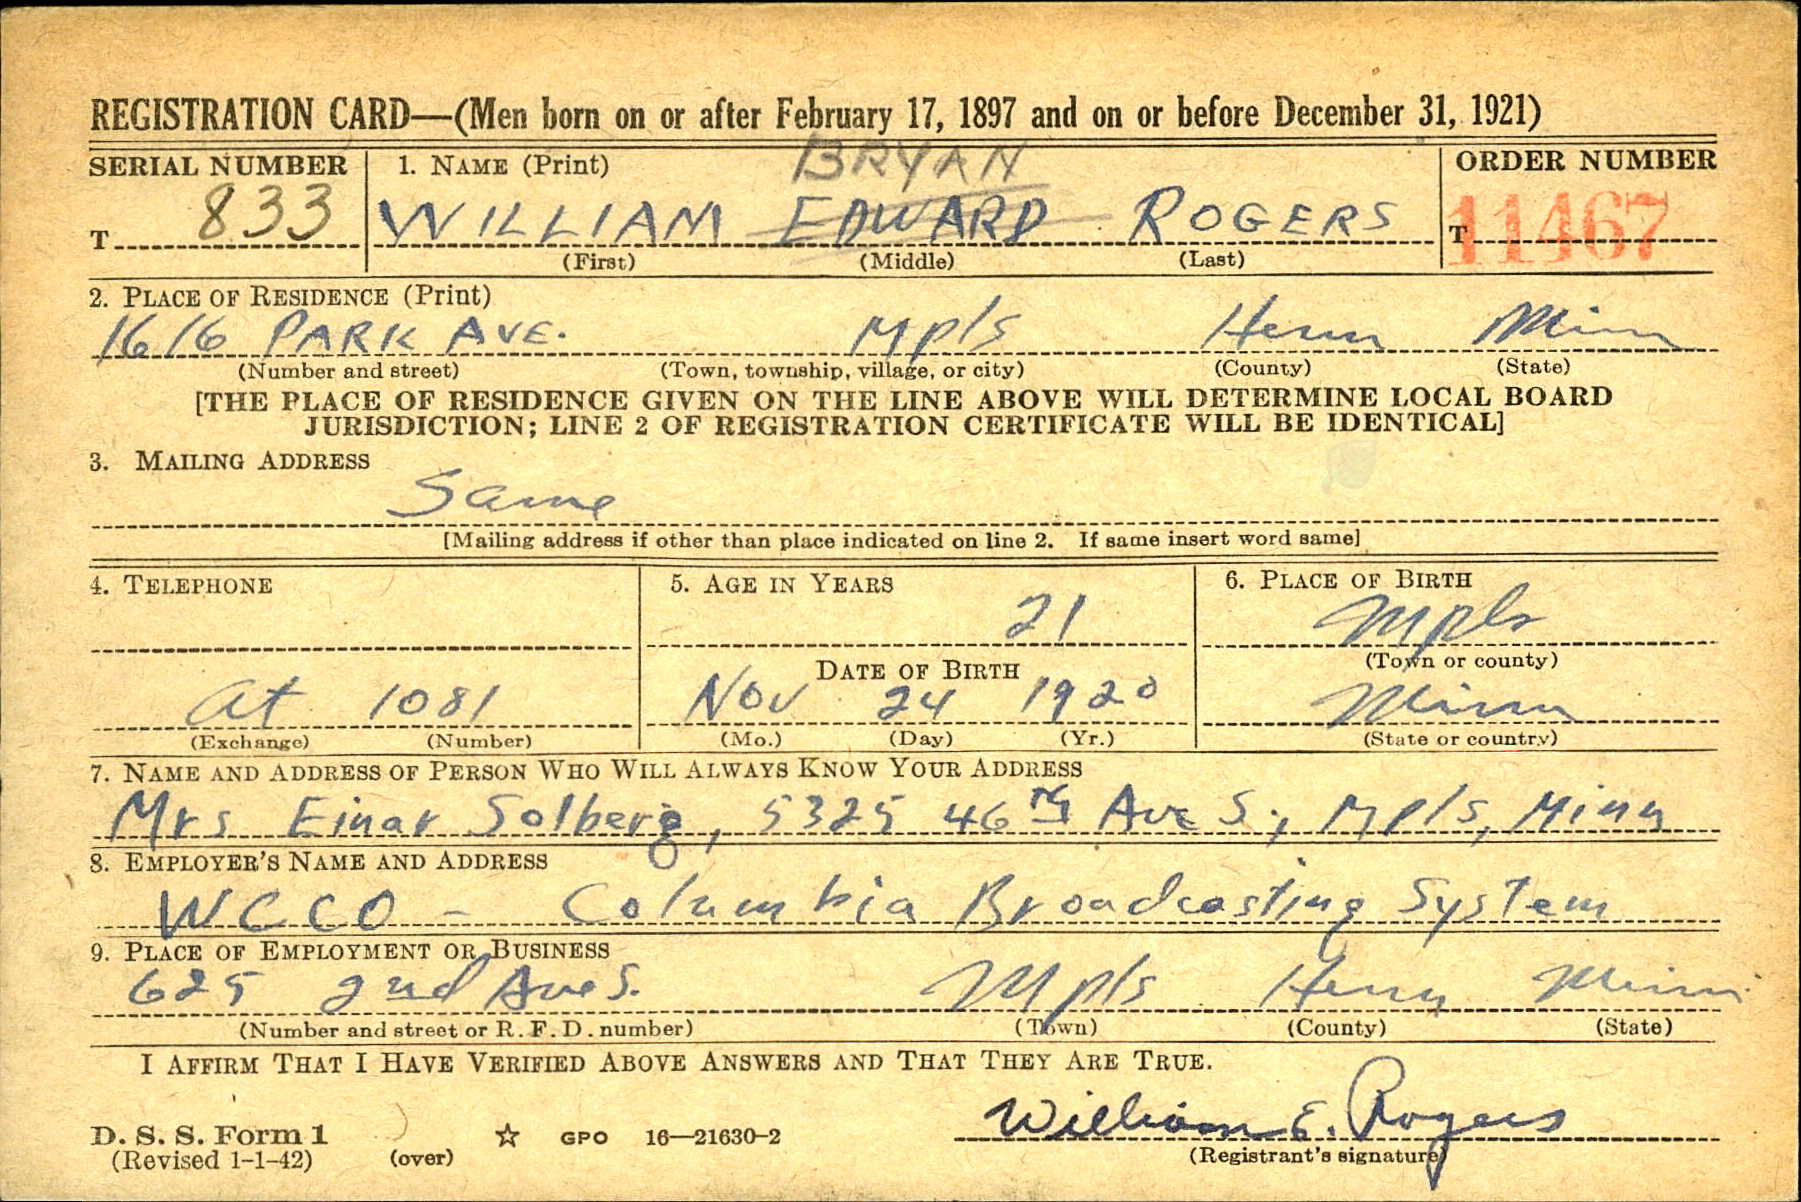 REGISTRATION CARD—(Men born on or after February 17, 1897 and on or before December 31, 1921)
SERIAL NUMBER 1. NAME (Print) BRYAN ORDER NUMBER
T 833 WILLIAM EDWARD ROGERS T 11467
(First) (Middle) (Last)
2. PLACE OF RESIDENCE (Print)
1616 PARK AVE. Mpls Henn Minn
(Number and street) (Town, township, village, or city) (County) (State)
[THE PLACE OF RESIDENCE GIVEN ON THE LINE ABOVE WILL DETERMINE LOCAL BOARD
JURISDICTION; LINE 2 OF REGISTRATION CERTIFICATE WILL BE IDENTICAL]
3. MAILING ADDRESS
Same
[Mailing address if other than place indicated on line 2. If same insert word same]
4. TELEPHONE 5. AGE IN YEARS 6. PLACE OF BIRTH
21 Mpls
DATE OF BIRTH (Town or county)
At 1081 Nov 24 1920 Minn
(Exchange) (Number) (Mo.) (Day) (Yr.) (State or country)
7. NAME AND ADDRESS OF PERSON WHO WILL ALWAYS KNOW YOUR ADDRESS
Mrs Einar Solberg, 5325 46th Ave S., Mpls, Minn
8. EMPLOYER'S NAME AND ADDRESS
WCCO - Columbia Broadcasting System
9. PLACE OF EMPLOYMENT OR BUSINESS
625 2nd Ave S. Mpls Henn Minn
(Number and street or R. F. D. number) (Town) (County) (State)
I AFFIRM THAT I HAVE VERIFIED ABOVE ANSWERS AND THAT THEY ARE TRUE.
William E. Rogers
D. S. S. Form 1 ☆ GPO 16—21630-2
(Revised 1-1-42) (over) (Registrant's signature)